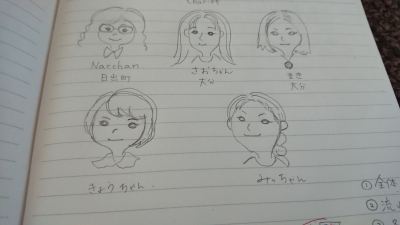 Naechan
日出町
さおちゃん
大分
まき
大分
きょうちゃん.
みっちゃん
① 全体
②